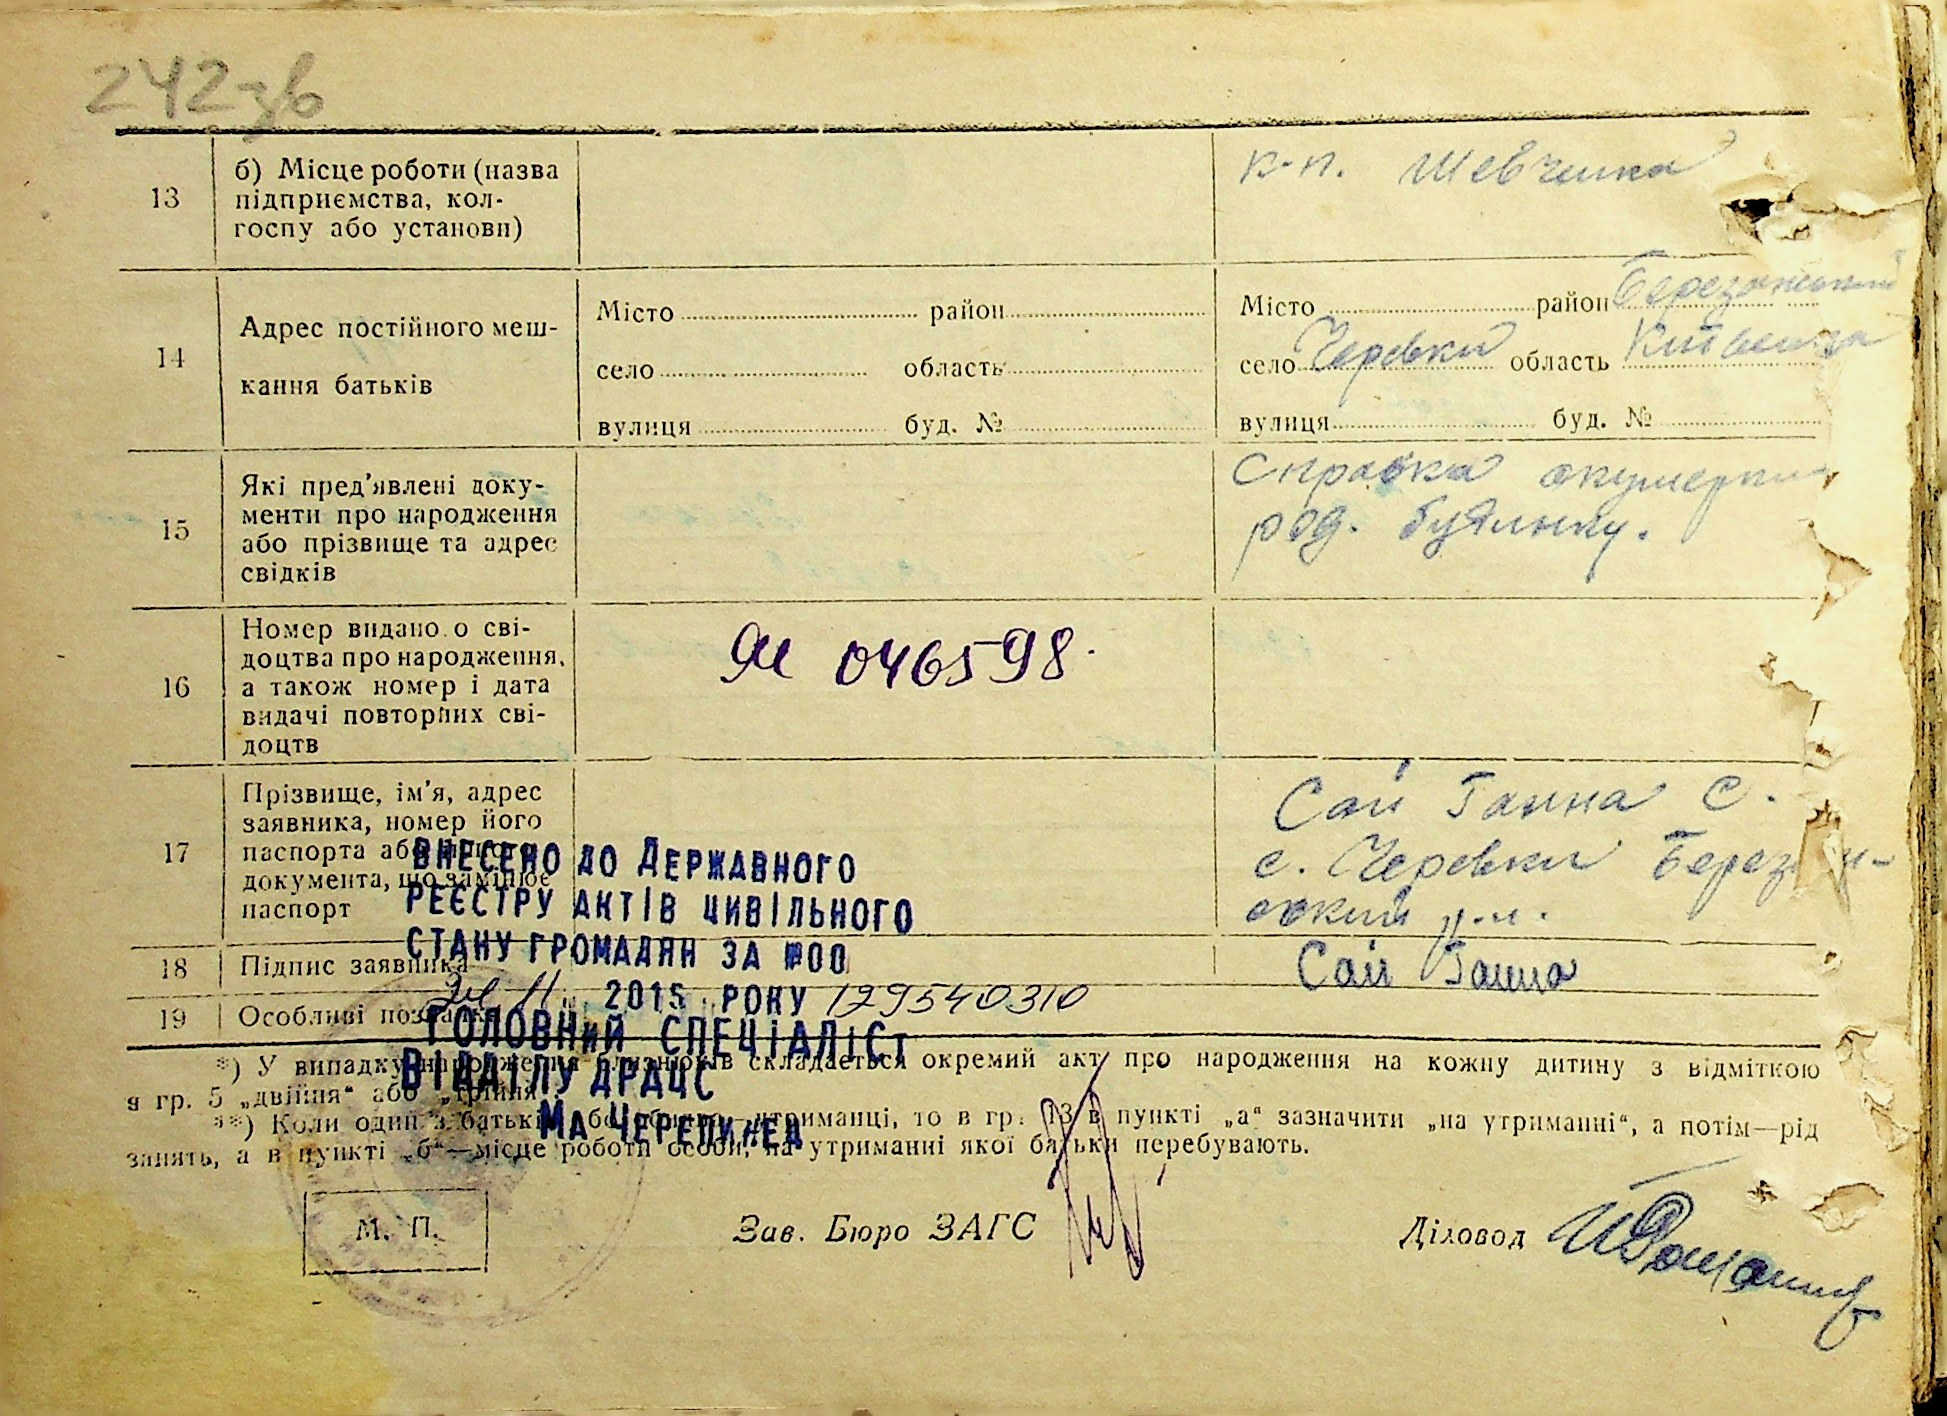 242зв
13
б) Місце роботи (назва
підприємства, кол-
госпу або установи)
к-п. Шевченка
14
Адрес постійного меш-
кання батьків
Місто район
село область
вулиця буд. №
Місто район Березанський
село Черевки область Київська
вулиця буд. №
15
Які пред’явлені доку-
менти про народження
або прізвище та адрес
свідків
Справка акушерки
род. будинку.
16
Номер видано о сві-
доцтва про народження,
а також номер і дата
видачі повторних сві-
доцтв
046598.
17
Прізвище, ім’я, адрес
заявника, номер його
паспорта або
документа, що замінює
паспорт
Сай Ганна С.
с. Черевки Берез н-
ський р.н.
18
Підпис заявника
Сай Ганна
19
Особливі
Внесено до Державного
реєстру актів цивільного
стану громадян за №00
11 2015 року 129540310
Головний спеціаліст
Відділу ДРАЦС
*) У випадку народження близнюків складається окремий акт про народження на кожну дитину з відміткою
в гр. 5 „двійня“ або „трійня“.
**) Коли один з батьків утриманці, то в гр. 13 в пункті „а“ зазначити „на утриманні“, а потім—рід
занять, а в пункті „б“—місце роботи особи, на утриманні якої батьки перебувають.
М. П.
Зав. Бюро ЗАГС
Діловод